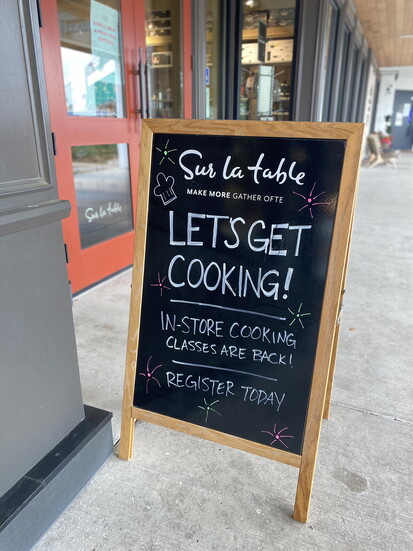 Sur la table
MAKE MORE GATHER OFTE
LET'S GET
COOKING!
IN-STORE COOKING
CLASSES ARE BACK!
REGISTER TODAY
Sur la table